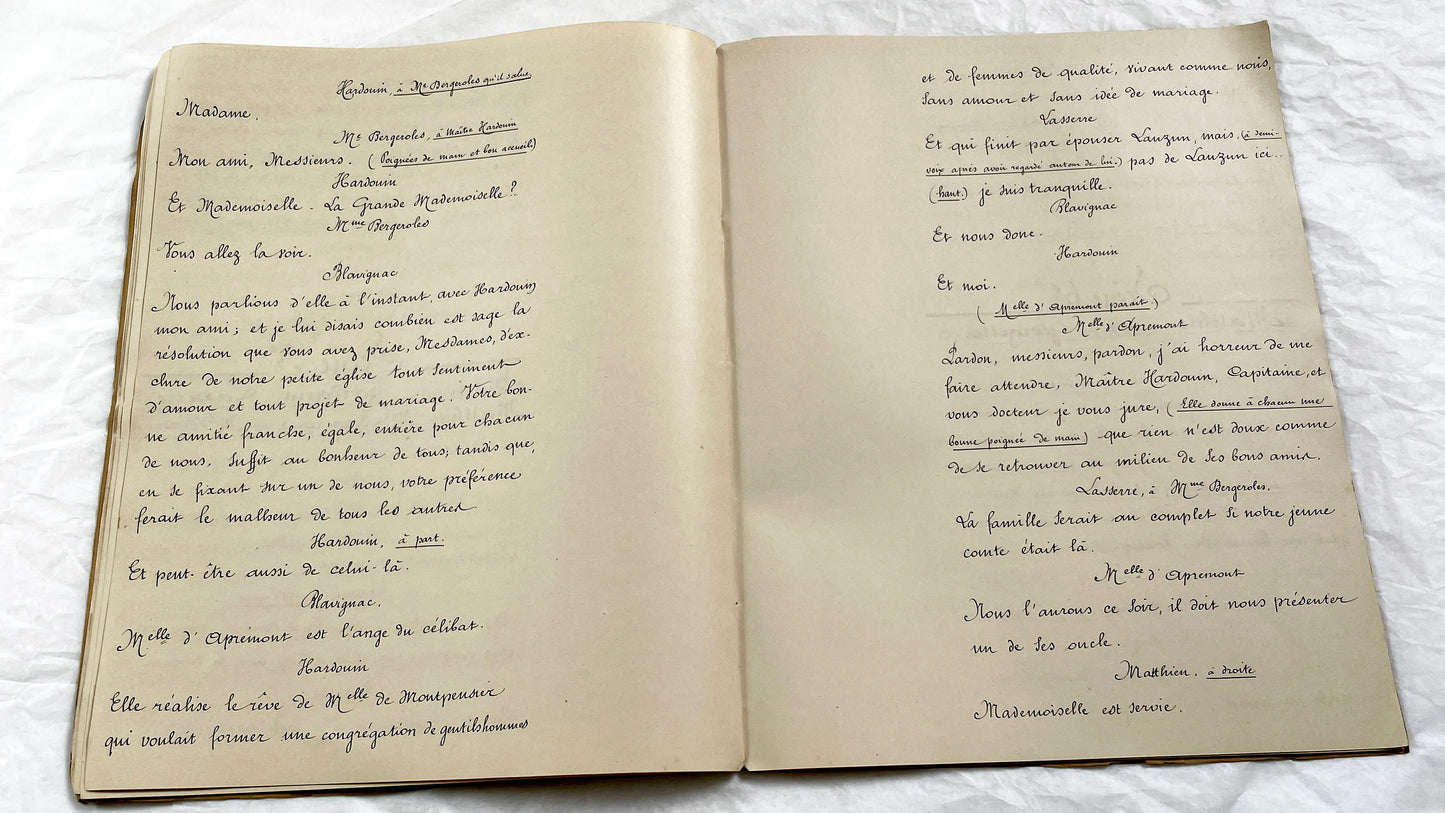 Hardouin, à Me Bergeroles qu'il salue.
Madame.
Me Bergeroles, à Maître Hardouin
Mon ami, Messieurs. (Poignées de main et bon accueil.)
Hardouin
Et Mademoiselle. La Grande Mademoiselle?
Mme Bergeroles
Vous allez la voir.
Blavignac
Nous parlions d'elle à l'instant, avec Hardouin
mon ami; et je lui disais combien est sage la
résolution que vous avez prise, Mesdames, d'ex-
clure de notre petite église tout sentiment
d'amour et tout projet de mariage. Votre bon-
ne amitié franche, égale, entière pour chacun
de nous, suffit au bonheur de tous; tandis que,
en se fixant sur un de nous, votre préférence
ferait le malheur de tous les autres
Hardouin, à part.
Et peut-être aussi de celui-là.
Blavignac.
Melle d'Apremont est l'ange du célibat.
Hardouin
Elle réalise le rêve de Melle de Montpensier
qui voulait former une congrégation de gentilshommes
et de femmes de qualité, vivant comme nous,
sans amour et sans idée de mariage.
Lasserre
Et qui finit par épouser Lauzun, mais, (à demi-
voix après avoir regardé autour de lui.) pas de Lauzun ici...
(haut.) je suis tranquille.
Blavignac
Et nous donc.
Hardouin
Et moi.
(Melle d'Apremont parait.)
Melle d'Apremont
Pardon, messieurs, pardon, j'ai horreur de me
faire attendre, Maître Hardouin, Capitaine, et
vous docteur je vous jure, (Elle donne à chacun une
bonne poignée de main) que rien n'est doux comme
de se retrouver au milieu de ses bons amis.
Lasserre, à Mme Bergeroles.
La famille serait au complet si notre jeune
comte était là.
Melle d'Apremont
Nous l'aurons ce soir, il doit nous présenter
un de ses oncle.
Matthieu. à droite
Mademoiselle est servie.